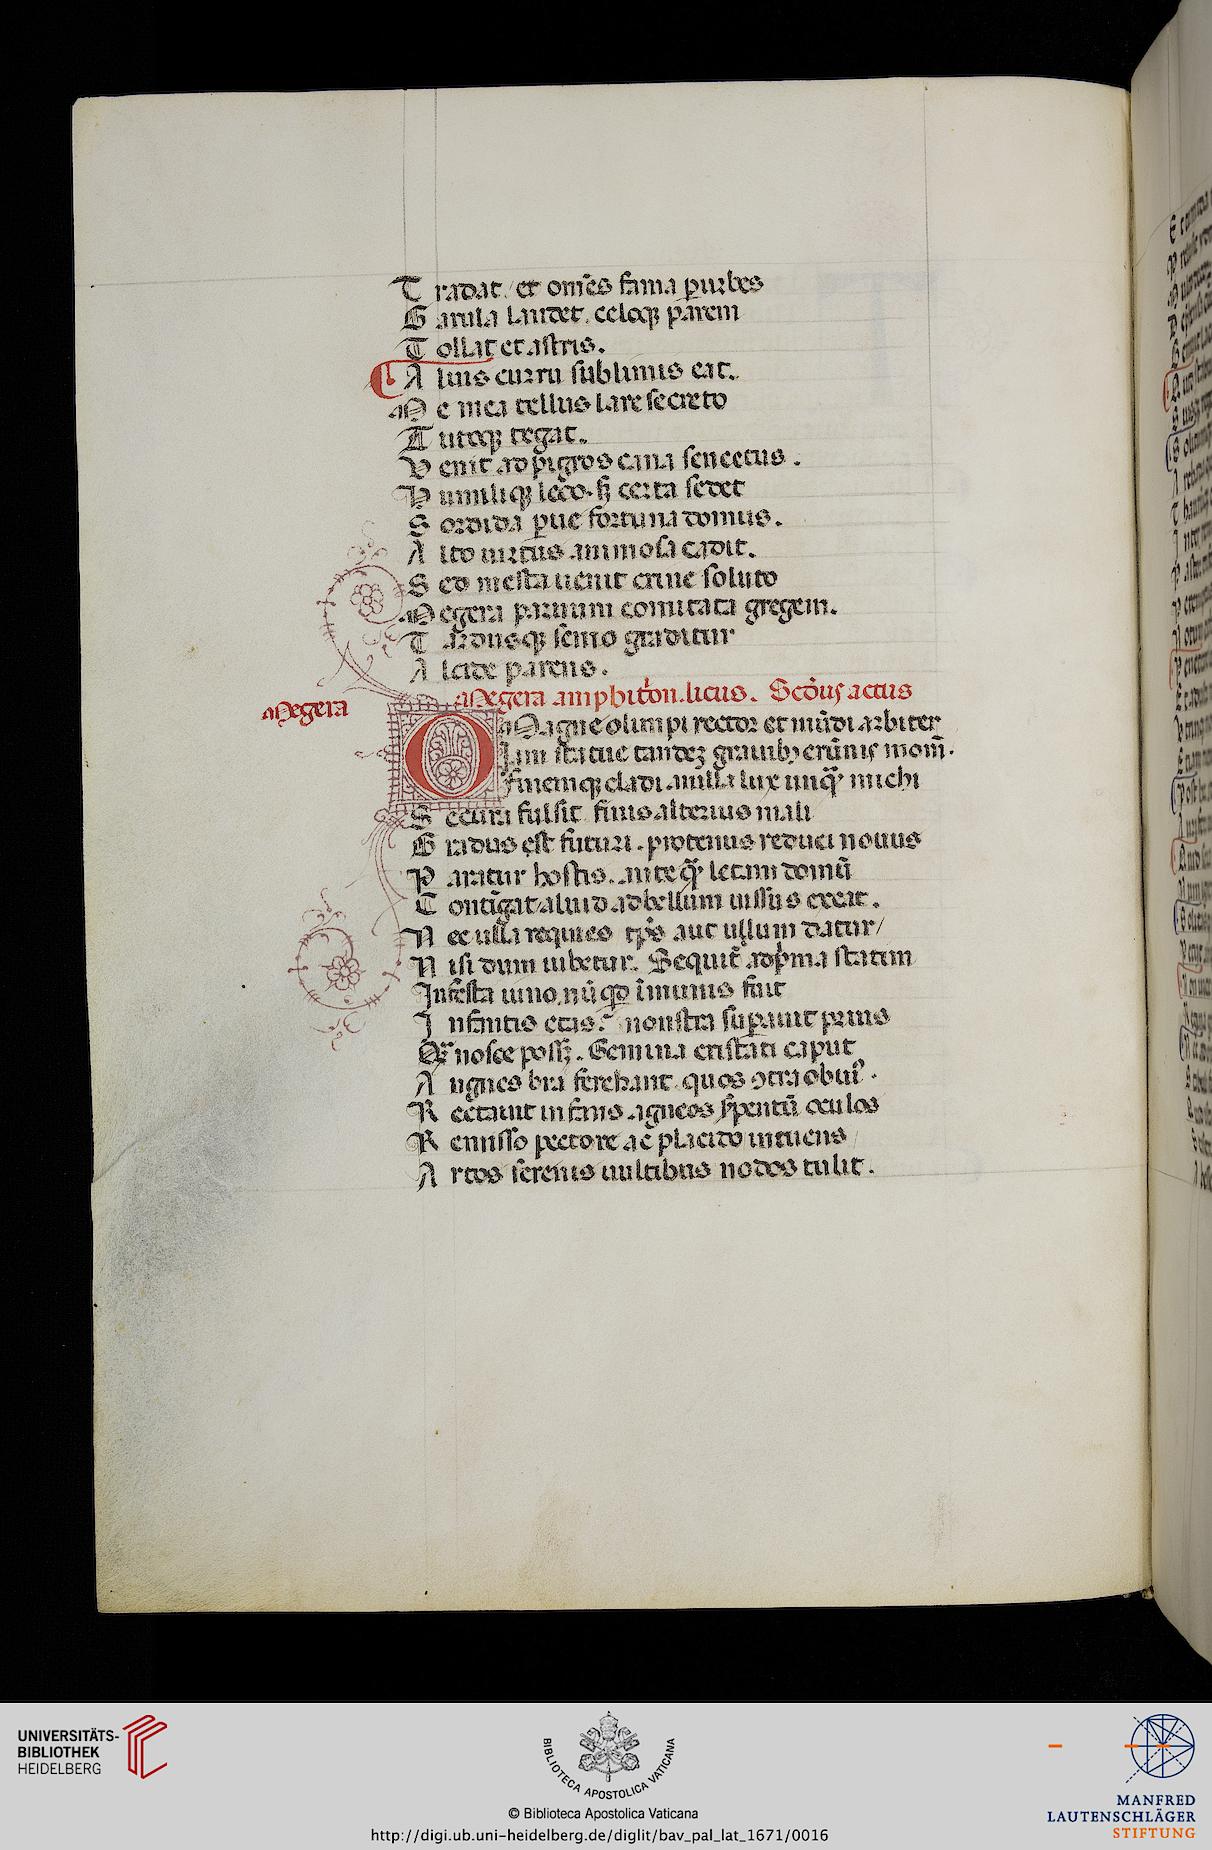 Tradat et om̄es fama p̱ urbes
Garula laudet. celoq̨ parem
Tollat et astris.
Alius curru sublimis eat.
Me mea tellus lare secreto
Tutoq̨ tegat.
Venit ad pigros cana senectus.
Humiliq̨ loco. sꝫ certa sedet
Sordida parue fortuna domus.
Alto uirtus animosa cadit.
Sed mesta uenit crine soluto
Megera paruum comitata gregem.
Tardusq̨ senio graditur
Alcide parens.
Megera amphitōn. licus. Scd̄us actus
Megera
O Magne olimpi rector et mūdi arbiter
Iam statue tandeꝫ grauibꝫ erūnis mom̄.
finemq̨ cladi. nulla lux unq̄ michi
Secura fulsit. finis alterius mali
Gradus est futuri. protenus reduci nouus
Paratur hostis. ante q̄ letam domū
Contīgat aliud ad bellum iussus exeat.
Nec ulla requies tp̄s aut ullum datur
Nisi dum iubetur. Sequit̄ a pͥma statim
Infesta iuno. nūq̄d īmunis fuit
Infantis etas. monstra suꝑauit prius
Qᷓ nosce possꝫ. Gemina cristati caput
Angues bra ferebant. quos ꝯtra obui᾿
Reptauit infans. igneos sꝑentū oculos
Remisso pectore ac placido intuens
Artos serenis uultibus nodos tulit.
UNIVERSITÄTS-
BIBLIOTHEK
HEIDELBERG
BIBLIOTECA APOSTOLICA VATICANA
© Biblioteca Apostolica Vaticana
http://digi.ub.uni-heidelberg.de/diglit/bav_pal_lat_1671/0016
MANFRED
LAUTENSCHLÄGER
STIFTUNG